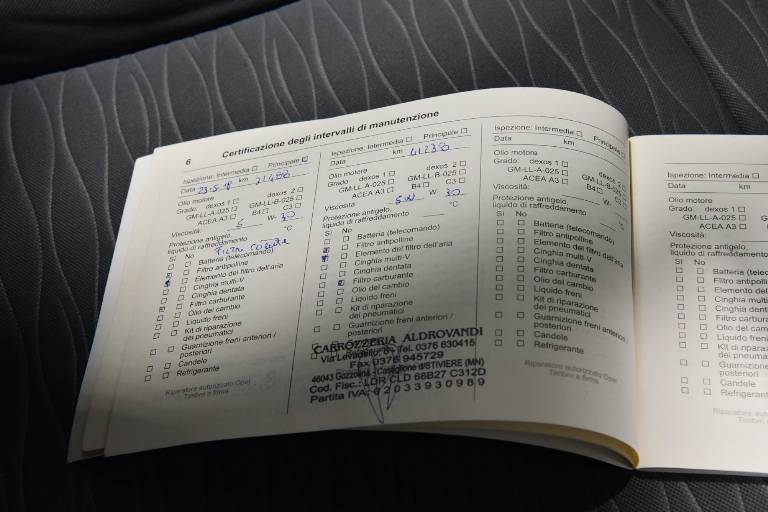 6 Certificazione degli intervalli di manutenzione
Ispezione: Intermedia ☐ Principale
Data 23-5-18 km 21488
Olio motore
Grado: dexos 1 ☐ dexos 2 ☐
GM-LL-A-025 ☐ GM-LL-B-025 ☐
ACEA A3 ☐ B4 ☐ C3 ☐
Viscosità: 5 W- 30
Protezione antigelo,
liquido di raffreddamento °C
Sì No
Batteria (telecomando)
Filtro antipolline
Elemento del filtro dell'aria
Cinghia multi-V
Cinghia dentata
Filtro carburante
Olio del cambio
Liquido freni
Kit di riparazione
dei pneumatici
Guarnizione freni anteriori /
posteriori
Candele
Refrigerante
Riparatore autorizzato Opel
Timbro e firma
Ispezione: Intermedia ☐ Principale ☐
Data km 41238
Olio motore
Grado: dexos 1 ☐ dexos 2 ☐
GM-LL-A-025 ☐ GM-LL-B-025 ☐
ACEA A3 ☐ B4 ☐ C3 ☐
Viscosità W- 30
Protezione antigelo,
liquido di raffreddamento °C
Sì No
Batteria (telecomando)
Filtro antipolline
Elemento del filtro dell'aria
Cinghia multi-V
Cinghia dentata
Filtro carburante
Olio del cambio
Liquido freni
Kit di riparazione
dei pneumatici
Guarnizione freni anteriori /
posteriori
CARROZZERIA ALDROVANDI
Tel. 0376 630415
Fax 0376 945729
46043 Gozzolina - Castiglione d/STIVIERE (MN)
Cod. Fisc.: LDR CLD 68B27 C312D
Partita IVA: 02033930989
Ispezione: Intermedia ☐ Principale
Data km
Olio motore
Grado: dexos 1 ☐ dexos 2
GM-LL-A-025 ☐ GM-LL-B-025
ACEA A3 ☐ B4 ☐ C3
Viscosità: W-
Protezione antigelo,
liquido di raffreddamento °C
Sì No
Batteria (telecomando)
Filtro antipolline
Elemento del filtro dell'aria
Cinghia multi-V
Cinghia dentata
Filtro carburante
Olio del cambio
Liquido freni
Kit di riparazione
dei pneumatici
Guarnizione freni anteriori /
posteriori
Candele
Refrigerante
Riparatore autorizzato Opel
Timbro e firma
Ispezione: Intermedia ☐
Data km
Olio motore
Grado: dexos 1 ☐
GM-LL-A-025 ☐ GM-LL
ACEA A3 ☐ B4
Viscosità:
Protezione antigelo,
liquido di raffreddamento
Sì No
Batteria (teleco
Filtro antipolli
Elemento del
Cinghia multi
Cinghia dent
Filtro carbura
Olio del cam
Liquido freni
Kit di ripara
dei pneuma
Guarnizione
posteriori
Candele
Refrigerant